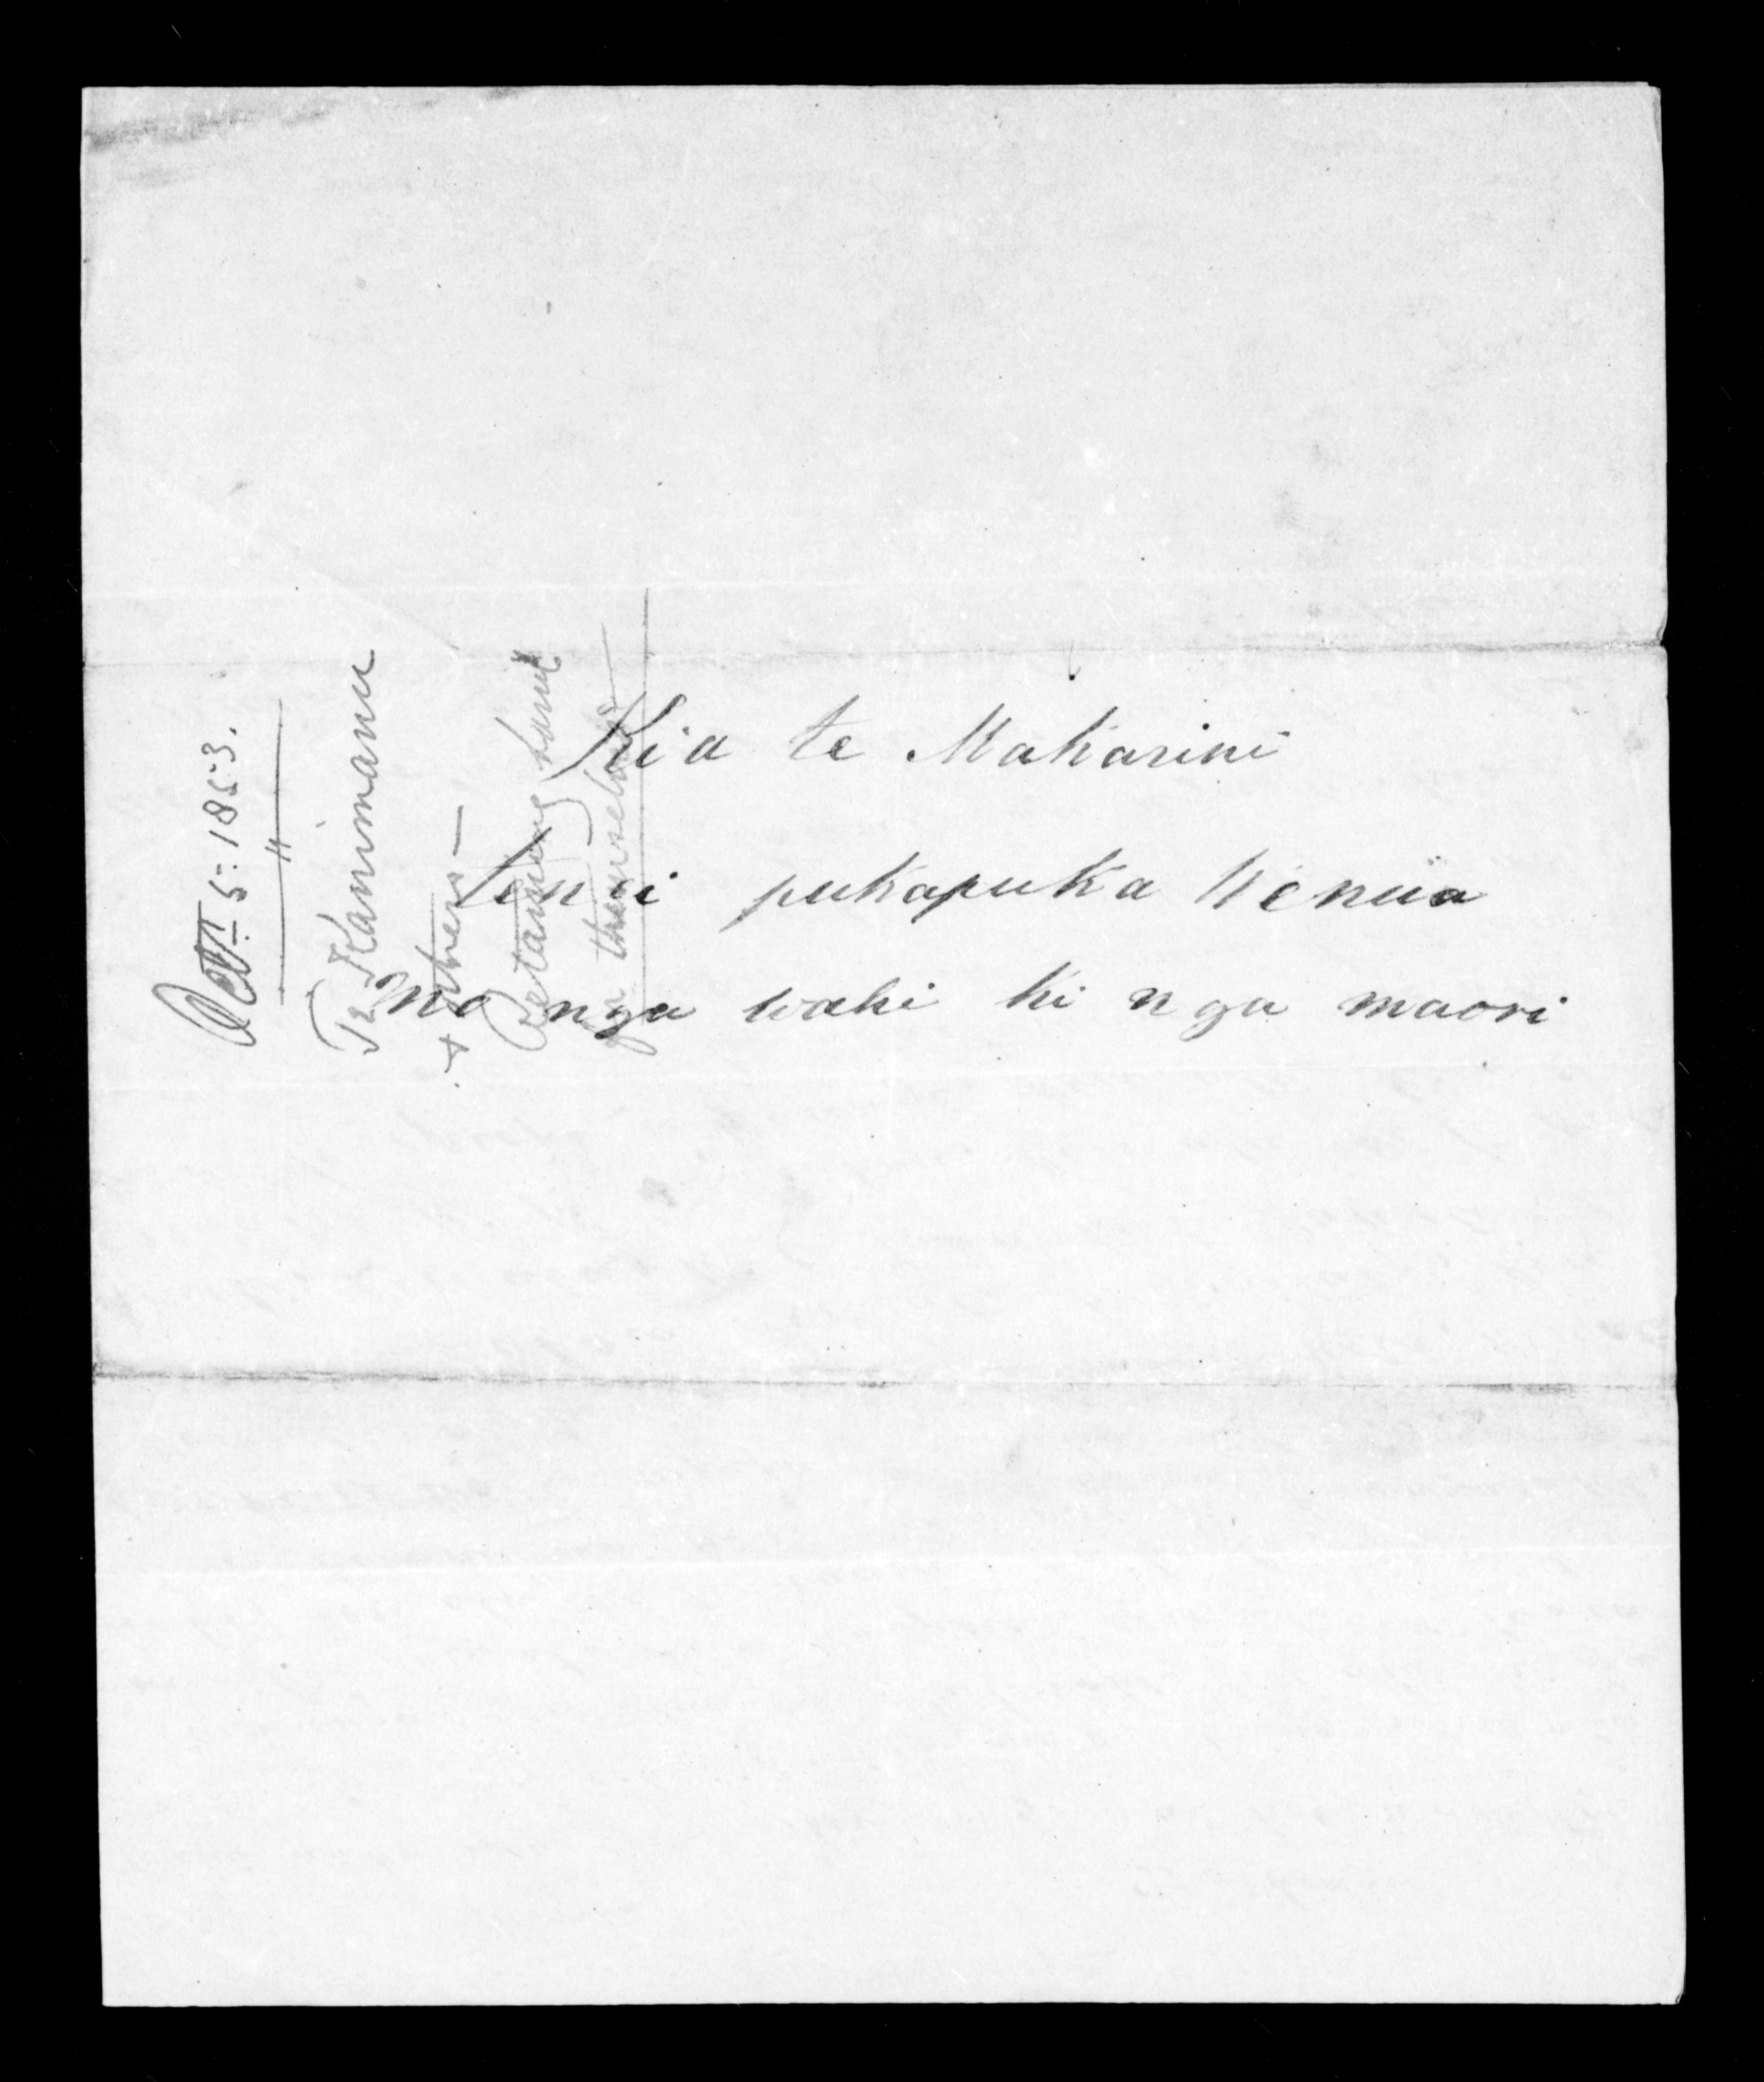 Kia te Makarini
Tenei pukapuka Wenua
mo nga wahi ki nga maori
Octr 5: 1853.
Te Kanimanu
& others —
Retaining land
for themselves